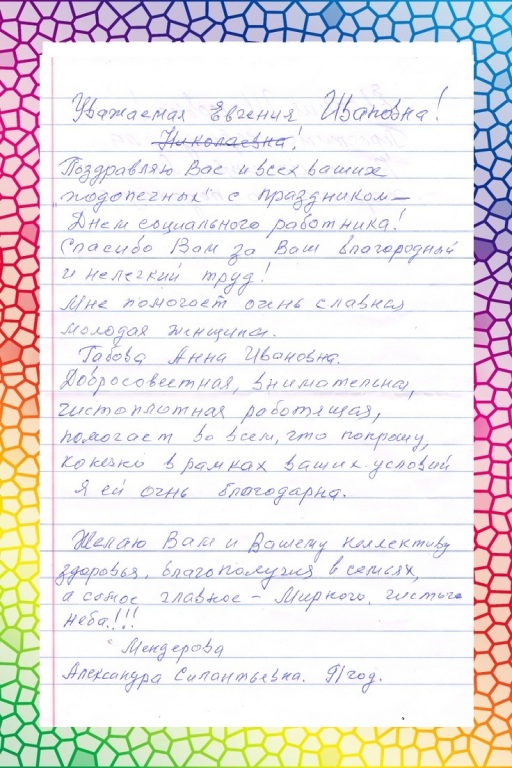 Уважаемая Евгения Ивановна!
Николаевна!
Поздравляю Вас и всех ваших
"подопечных" с праздником –
Днем социального работника!
Спасибо Вам за Ваш благородный
и нелегкий труд!
Мне помогает очень славная
молодая женщина.
Габова Анна Ивановна.
Добросовестная, внимательная,
чистоплотная работящая,
помогает во всем, что попрошу,
конечно в рамках ваших условий
Я ей очнь благодарна.
Желаю Вам и Вашему коллективу
здоровья, благополучия в семьях,
а самое главное – Мирного, чистого
неба!!!
Мендерова
Александра Силантьевна. год.